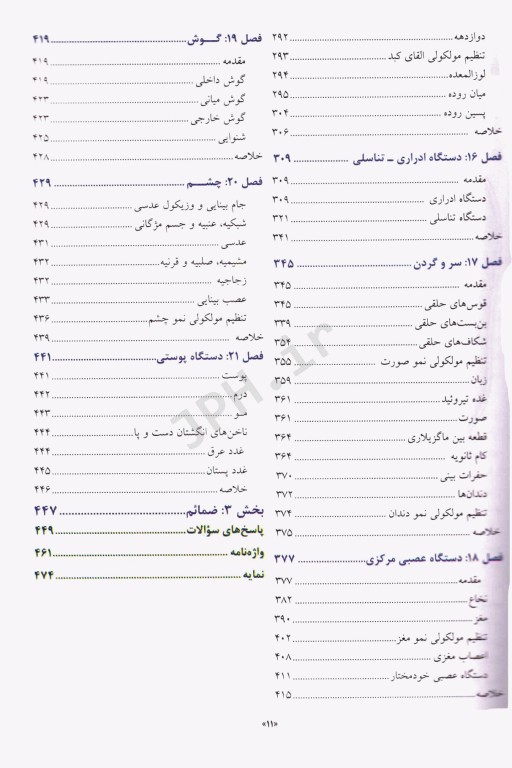 دوازدهه ۲۹۲
تنظیم مولکولی القای کبد ۲۹۳
لوزالمعده ۲۹۴
میان روده ۲۹۵
پسین روده ۳۰۴
خلاصه ۳۰۶
فصل ۱۶: دستگاه ادراری ـ تناسلی ۳۰۹
مقدمه ۳۰۹
دستگاه ادراری ۳۰۹
دستگاه تناسلی ۳۲۱
خلاصه ۳۴۱
فصل ۱۷: سر و گردن ۳۴۵
مقدمه ۳۴۵
قوس‌های حلقی ۳۴۵
بن‌بست‌های حلقی ۳۳۹
شکاف‌های حلقی ۳۵۴
تنظیم مولکولی نمو صورت ۳۵۵
زبان ۳۵۹
غده تیروئید ۳۶۱
صورت ۳۶۱
قطعه بین ماگزیلاری ۳۶۴
کام ثانویه ۳۶۴
حفرات بینی ۳۷۰
دندان‌ها ۳۷۲
تنظیم مولکولی نمو دندان ۳۷۴
خلاصه ۳۷۵
فصل ۱۸: دستگاه عصبی مرکزی ۳۷۷
مقدمه ۳۷۷
نخاع ۳۸۲
مغز ۳۹۰
تنظیم مولکولی نمو مغز ۴۰۲
اعصاب مغزی ۴۰۸
دستگاه عصبی خودمختار ۴۱۱
خلاصه ۴۱۵
فصل ۱۹: گـــوش ۴۱۹
مقدمه ۴۱۹
گوش داخلی ۴۱۹
گوش میانی ۴۲۳
گوش خارجی ۴۲۳
شنوایی ۴۲۵
خلاصه ۴۲۸
فصل ۲۰: چشـــم ۴۲۹
جام بینایی و وزیکول عدسی ۴۲۹
شبکیه، عنبیه و جسم مژگانی ۴۲۹
عدسی ۴۳۱
مشیمیه، صلبیه و قرنیه ۴۳۲
زجاجیه ۴۳۲
عصب بینایی ۴۳۳
تنظیم مولکولی نمو چشم ۴۳۶
خلاصه ۴۳۹
فصل ۲۱: دستگاه پوستی ۴۴۱
پوست ۴۴۱
درم ۴۴۲
مـو ۴۴۳
ناخن‌های انگشتان دست و پا ۴۴۴
غدد عرق ۴۴۴
غدد پستان ۴۴۵
خلاصه ۴۴۶
بخش ۳: ضمائم ۴۴۷
پاسخ‌های سؤالات ۴۴۹
واژه‌نامه ۴۶۱
نمایه ۴۷۴
«۱۱»
JPH.ir